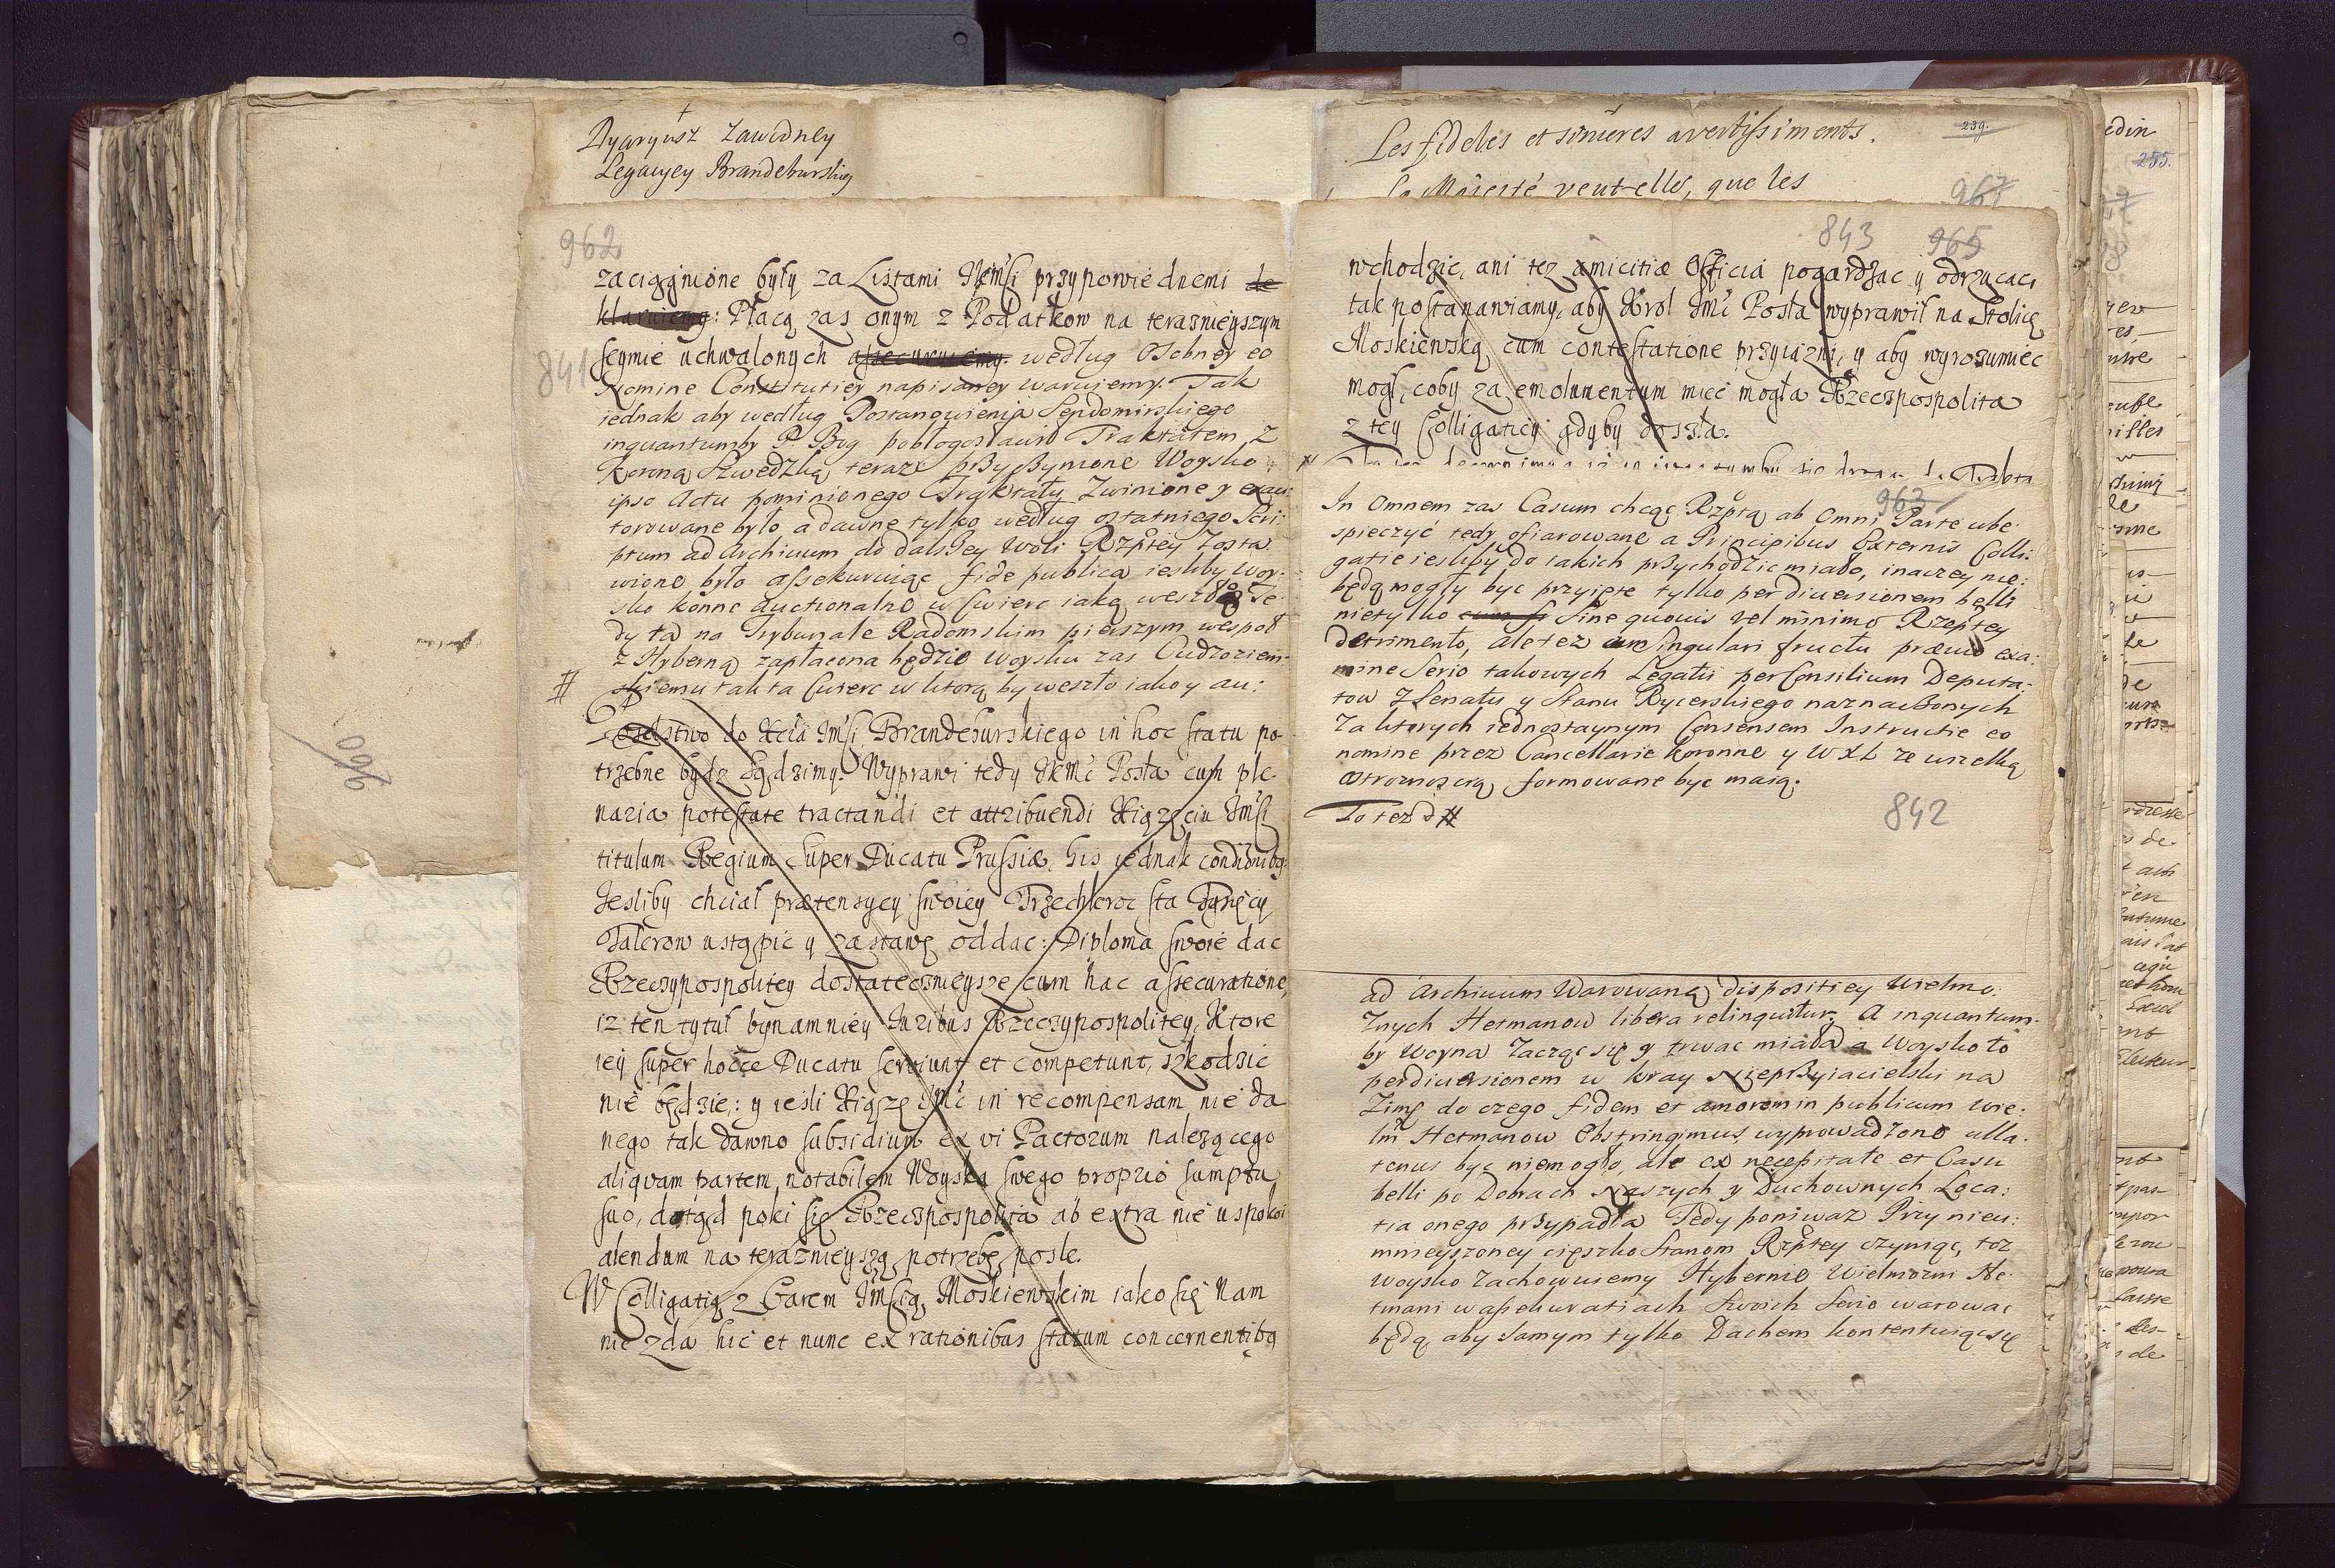 Dyaryusz Zawidney
Legacyey Brandeburskiey
962
zaciągnione były za Listami JKMsci przypowiednemi de
klarujemy: Płacą zas onym z Podatkow na terazniejszym
seymie uchwalonych assecurujemy. według osobney eo
841
Nomine Constitutiey napisaney warujemy. Tak
iednak aby według Postanowienia Sendomirskiego
inquantumby P. Bog pobłogosławił Traktatem z
Koroną Szwedzką teraz przyczynione Woysko
ipso Actu pominionego Traktatu Zwinione y exau:
torowane było a dawne tylko według ostatniego Scri:
ptum ad Archivum do dalszey Woli Rzptey Zosta
wione było assekuruiąc fide publica iesliby Woy:
sko konne auctionalne w cwierc iaką weszło Te
dy ta na Trybunale Radomskim pierszym wespoł
z Hyberną zapłacona będzie Woysku zas Cudzoziem:
# skiemu tak ta cwierc w ktorą by weszło iako y au:
Poselstwo do Xcia JMsci Brandeburskiego in hoc statu po-
trzebne bydz sądzimy. Wyprawi tedy JKMc Posła cum ple
naria potestate tractandi et attribuendi Xiążęciu JMsci
titulum Regium super Ducatu Prussiæ his jednak conditionibq
Jesliby chciał prætensyey swoiey Trzechkroc sta Tysięcy
Talerow ustąpic y zastawę oddac: Diploma swoie dac
Rzeczypospolitey dostatecznieysze cum hac assecuratione,
iz ten tytuł bynamniey Juribus Rzeczypospolitey, Ktore
iey super hocce Ducatu serviunt et competunt, szkodzic
nie będzie: y iesli Xiążę JMc in recompensam nie da
nego tak dawno subsidium ex vi Pactorum nalezącego
aliqvam partem notabilem Woyska swego proprio sumptu
suo, dotąd poki się Rzeczpospolita ab extra nie uspokoi
alendum na teraznieyszą potrzebę posle.
W Colligatią z Carem JMscią Moskiewskim iako się Nam
nie zda hic et nunc ex rationibus statum concernentibq
960
Les fideles et sinceres avertissiments.
239.
Sa Majesté veut-elle, que les
967
843 965
wchodzic, ani tez amicitiæ Officia pogardzac y odrzucac,
tak postanawiamy, aby Krol JMc Posła wyprawił na Stolicę
Moskiewską cum contestatione przyiazni, y aby wyrozumiec
mogł, coby za emolumentum miec mogła Rzeczpospolita
z tey Colligatiey gdyby doszła.
963
In Omnem zas Casum chcąc Rzptą ab omni Parte ube
spieczyć tedy ofiarowane a Principibus Externis Colli:
gatie iesliby do iakich przychodzic miało, inaczey nie:
będą mogły byc przyięte tylko per diversionem belli
nietylko sine quovis vel minimo Rzeptey
detrimento, ale tez cum singulari fructu prævio exa:
mine serio takowych Legatii per Consilium Deputa:
tow z Senatu y Stanu Rycerskiego naznaczonych
Za ktorych iednostaynym Consensem Instructie eo
nomine przez Cancellarie koronne y WXL ze wszelką
ostroznoscią formowane byc maią.
To tez d #
842
ad Archivum Warowaną dispositiey Wielmo:
znych Hetmanow libera relinquitur. A inquantum-
by Woyna Zacząc się y trwac miała a Woysko to
per diversionem w kray Nieprzyiacielski na
Zimę do czego fidem et amorem in publicum Wie:
lm Hetmanow Obstringimus wyprowadzone ulla
tenus byc niemogło, ale ex necessitate et Casu
belli po Dobrach Naszych y Duchownych Loca:
tia onego przypadła Tedy poniwaz Przy nieu:
mnieyszoney cięszko Stanom Rzptey czyniąc, toz
Woysko Zachowuiemy Hybernie Wielmozni He
tmani w assekuratiach Swoich Serio warowac
będą, aby samym tylko Dachem kontentuiąc się
255.